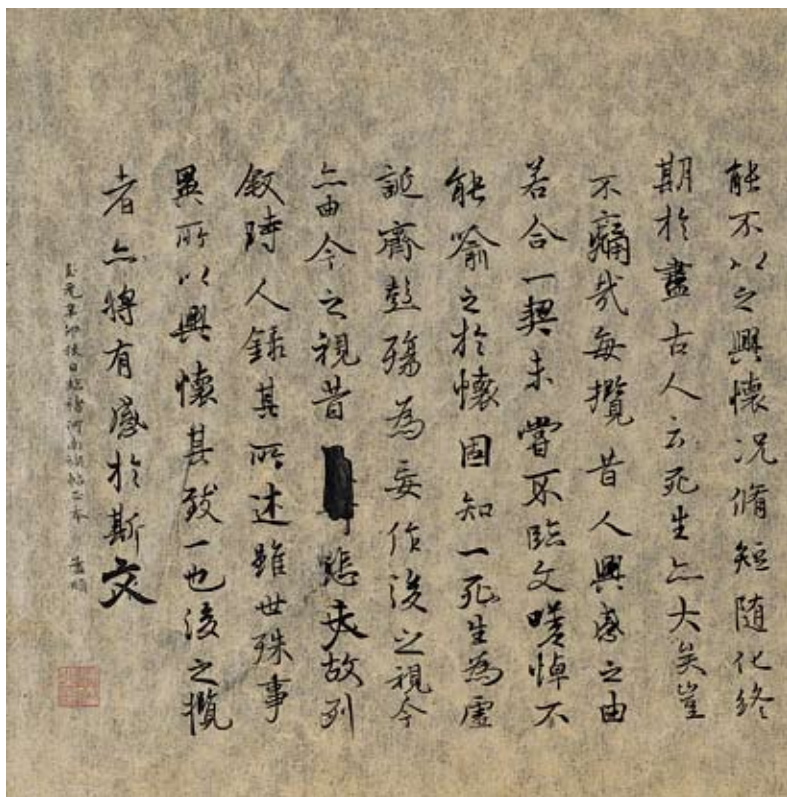 能不以之興懷况脩短随化終
期於盡古人云死生亦大矣豈
不痛哉每攬昔人興感之由
若合一契未嘗不臨文嗟悼不
能喻之於懷固知一死生為虛
誕齊彭殤為妄作後之視今
亦由今之視昔悲夫故列
叙時人録其所述雖世殊事
異所以興懷其致一也後之攬
者亦將有感於斯文
辛卯後日臨褚河南禊帖